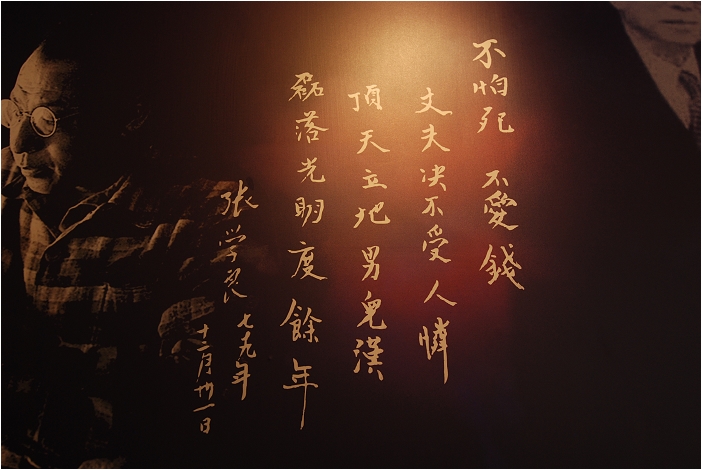 不怕死 不愛錢
丈夫决不受人憐
頂天立地男兒漢
磊落光明度餘年
張学良 七九年
十二月卅一日